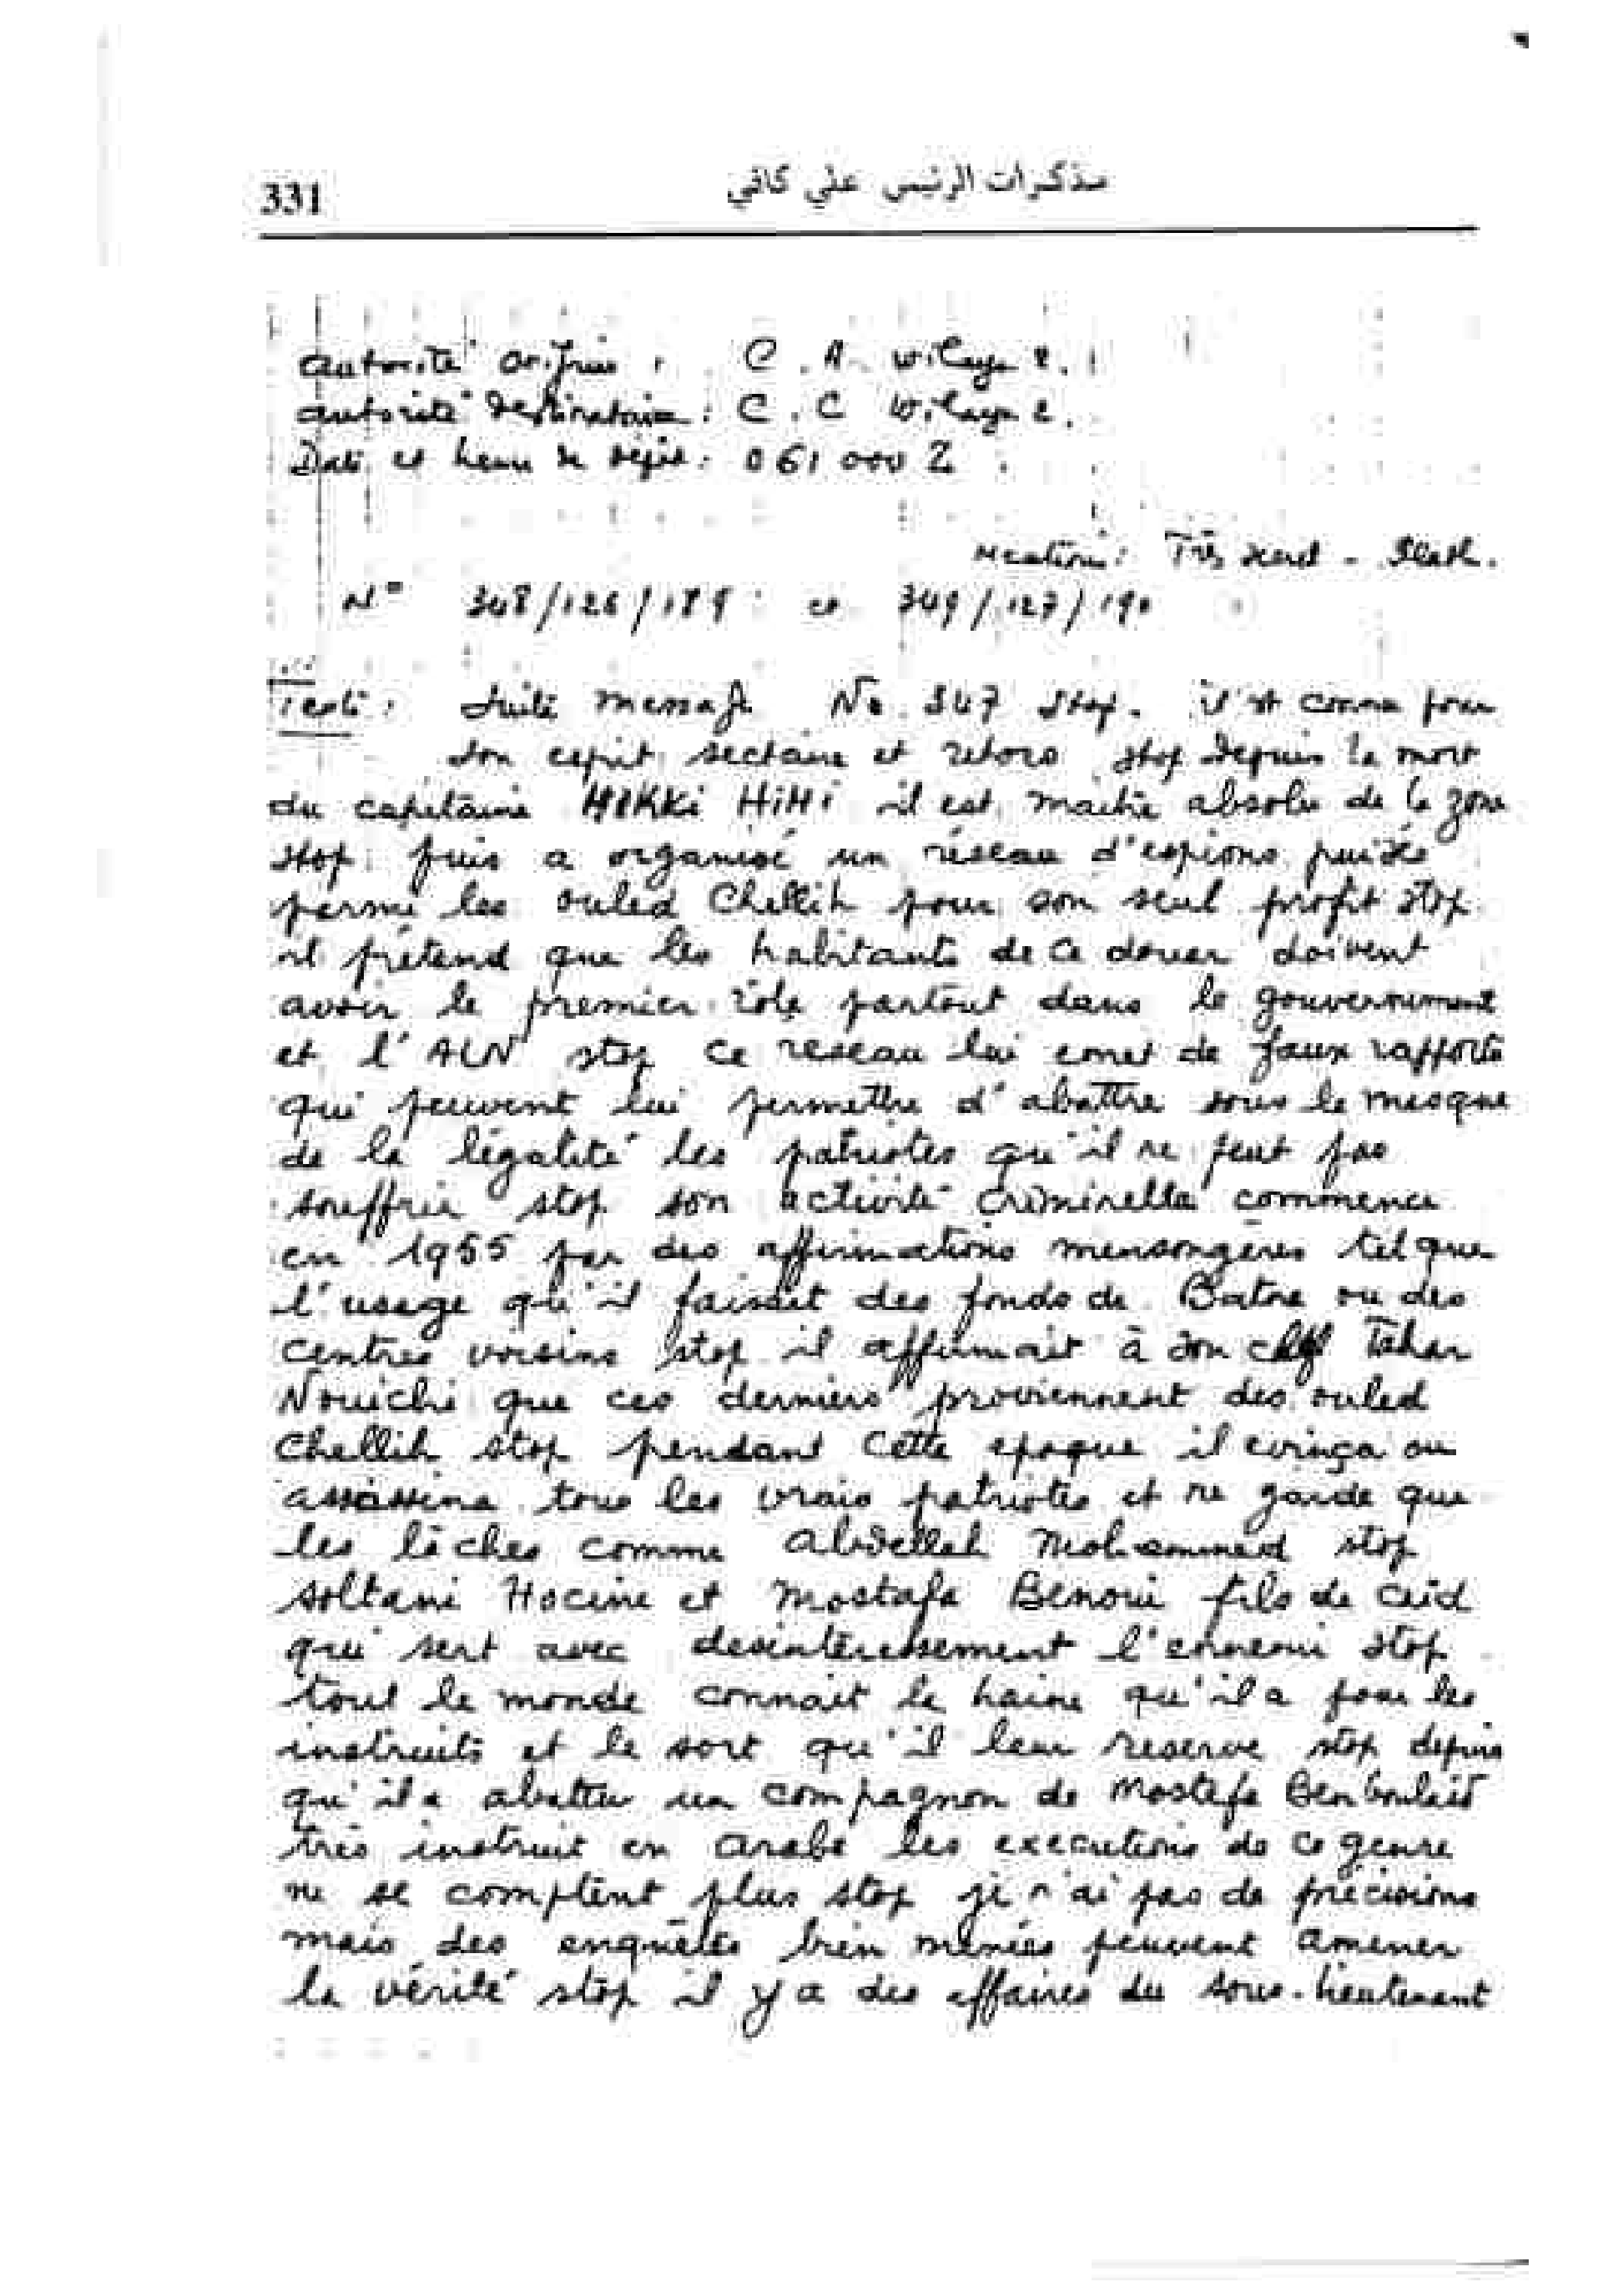 331
مذكرات الرئيس علي كافي
autorité origine : C. A. Wilaya 2.
autorité destinataire : C. C Wilaya 2.
Date et heure de dépôt : 061000 Z
Mention : Très secret - Flash.
N° 348/126/189 et 349/127/190
Texte : Suite message No 347 stop. il est connu pour
son esprit sectaire et retors stop depuis la mort
du capitaine HIHI il est maitre absolu de la zone
stop puis a organisé un réseau d'espions puisés
parmi les ouled Chellih pour son seul profit stop
il prétend que les habitants de ce douar doivent
avoir le premier role partout dans le gouvernement
et l'ALN stop ce reseau lui emet de faux rapports
qui peuvent lui permettre d'abattre sous le masque
de la légalité les patriotes qu'il ne peut pas
souffrir stop son activité criminelle commence
en 1955 par des affirmations mensongères tel que
l'usage qu'il faisait des fonds de Batna ou des
centres voisins stop il affirmait à son chef Tahar
Nouichi que ces derniers proviennent des ouled
Chellih stop pendant cette epoque il evinça ou
assassina tous les vrais patriotes et ne garde que
les lâches comme Abdellah Mohammed stop
soltani Hocine et Mostafa Benoui fils de caid
qui sert avec desintéressement l'ennemi stop
tout le monde connait la haine qu'il a pour les
instruits et le sort qu'il leur reserve stop depuis
qu'il a abattu un compagnon de Mostefa Benboulaid
très instruit en arabe les executions de ce genre
ne se comptent plus stop je n'ai pas de précisions
mais des enquêtes bien menées peuvent amener
la vérité stop il y a des affaires du sous-lieutenant